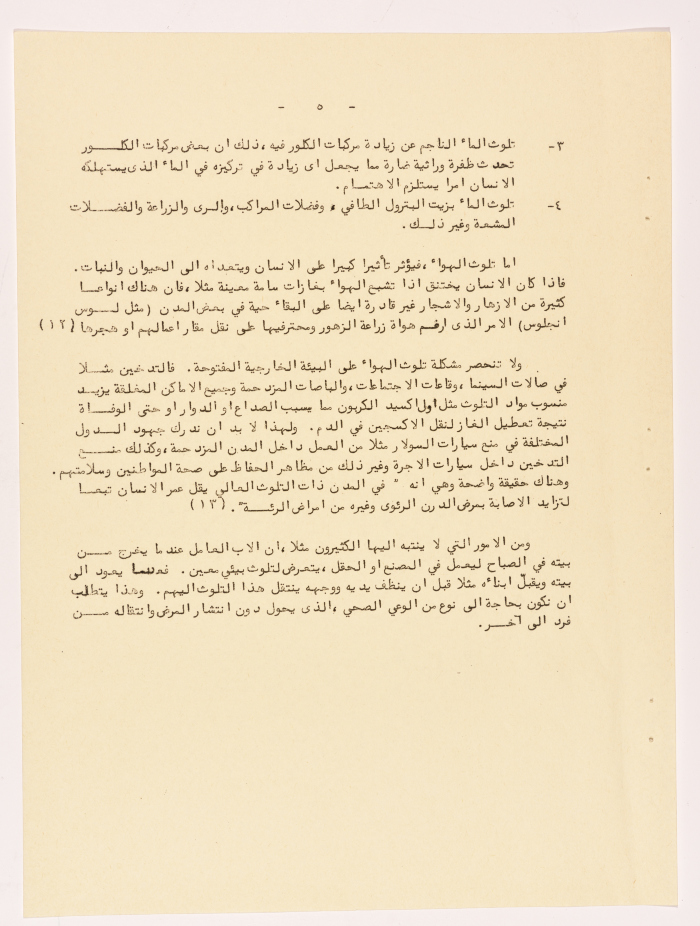 - ٥ -
٣- تلوث الماء الناجم عن زيادة مركبات الكلور فيه ، ذلك ان بعض مركبات الكلور
تحدث ظفرة وراثية ضارة مما يجعل اى زيادة في تركيزه في الماء الذى يستهلكه
الانسان امرا يستلزم الاهتمام .
٤- تلوث الماء بزيت البترول الطافي ، وفضلات المراكب ، والرى والزراعة والفضلات
المشعة وغير ذلك .
اما تلوث الهواء ، فيؤثر تأثيرا كبيرا على الانسان ويتعداه الى الحيوان والنبات .
فاذا كان الانسان يختنق اذا تشبع الهواء بغازات سامة معينة مثلا ، فان هناك انواعا
كثيرة من الازهار والاشجار غير قادرة ايضا على البقاء حية في بعض المدن ( مثل لوس
انجلوس ) الامر الذى ارغم هواة زراعة الزهور ومحترفيها على نقل مقار اعمالهم او هجرها (١٢)
ولا تنحصر مشكلة تلوث الهواء على البيئة الخارجية المفتوحة . فالتدخين مثلا
في صالات السينما ، وقاعات الاجتماعات ، والباصات المزدحمة وجميع الاماكن المغلقة يزيد
منسوب مواد التلوث مثل اول اكسيد الكربون مما يسبب الصداع او الدوار او حتى الوفاة
نتيجة تعطيل الغاز لنقل الاكسجين في الدم . ولهذا لا بد ان ندرك جهود الدول
المختلفة في منع سيارات السولار مثلا من العمل داخل المدن المزدحمة ، وكذلك منع
التدخين داخل سيارات الاجرة وغير ذلك من مظاهر الحفاظ على صحة المواطنين وسلامتهم .
وهناك حقيقة واضحة وهي انه " في المدن ذات التلوث العالي يقل عمر الانسان تبعا
لتزايد الاصابة بمرض الدرن الرئوى وغيره من امراض الرئة " . (١٣)
ومن الامور التي لا ينتبه اليها الكثيرون مثلا ، ان الاب العامل عندما يخرج من
بيته في الصباح ليعمل في المصنع او الحقل ، يتعرض لتلوث بيئي معين . فعندما يعود الى
بيته ويقبّل ابناءه مثلا قبل ان ينظف يديه ووجهه ينتقل هذا التلوث اليهم . وهذا يتطلب
ان نكون بحاجة الى نوع من الوعي الصحي ، الذى يحول دون انتشار المرض وانتقاله من
فرد الى آخر .